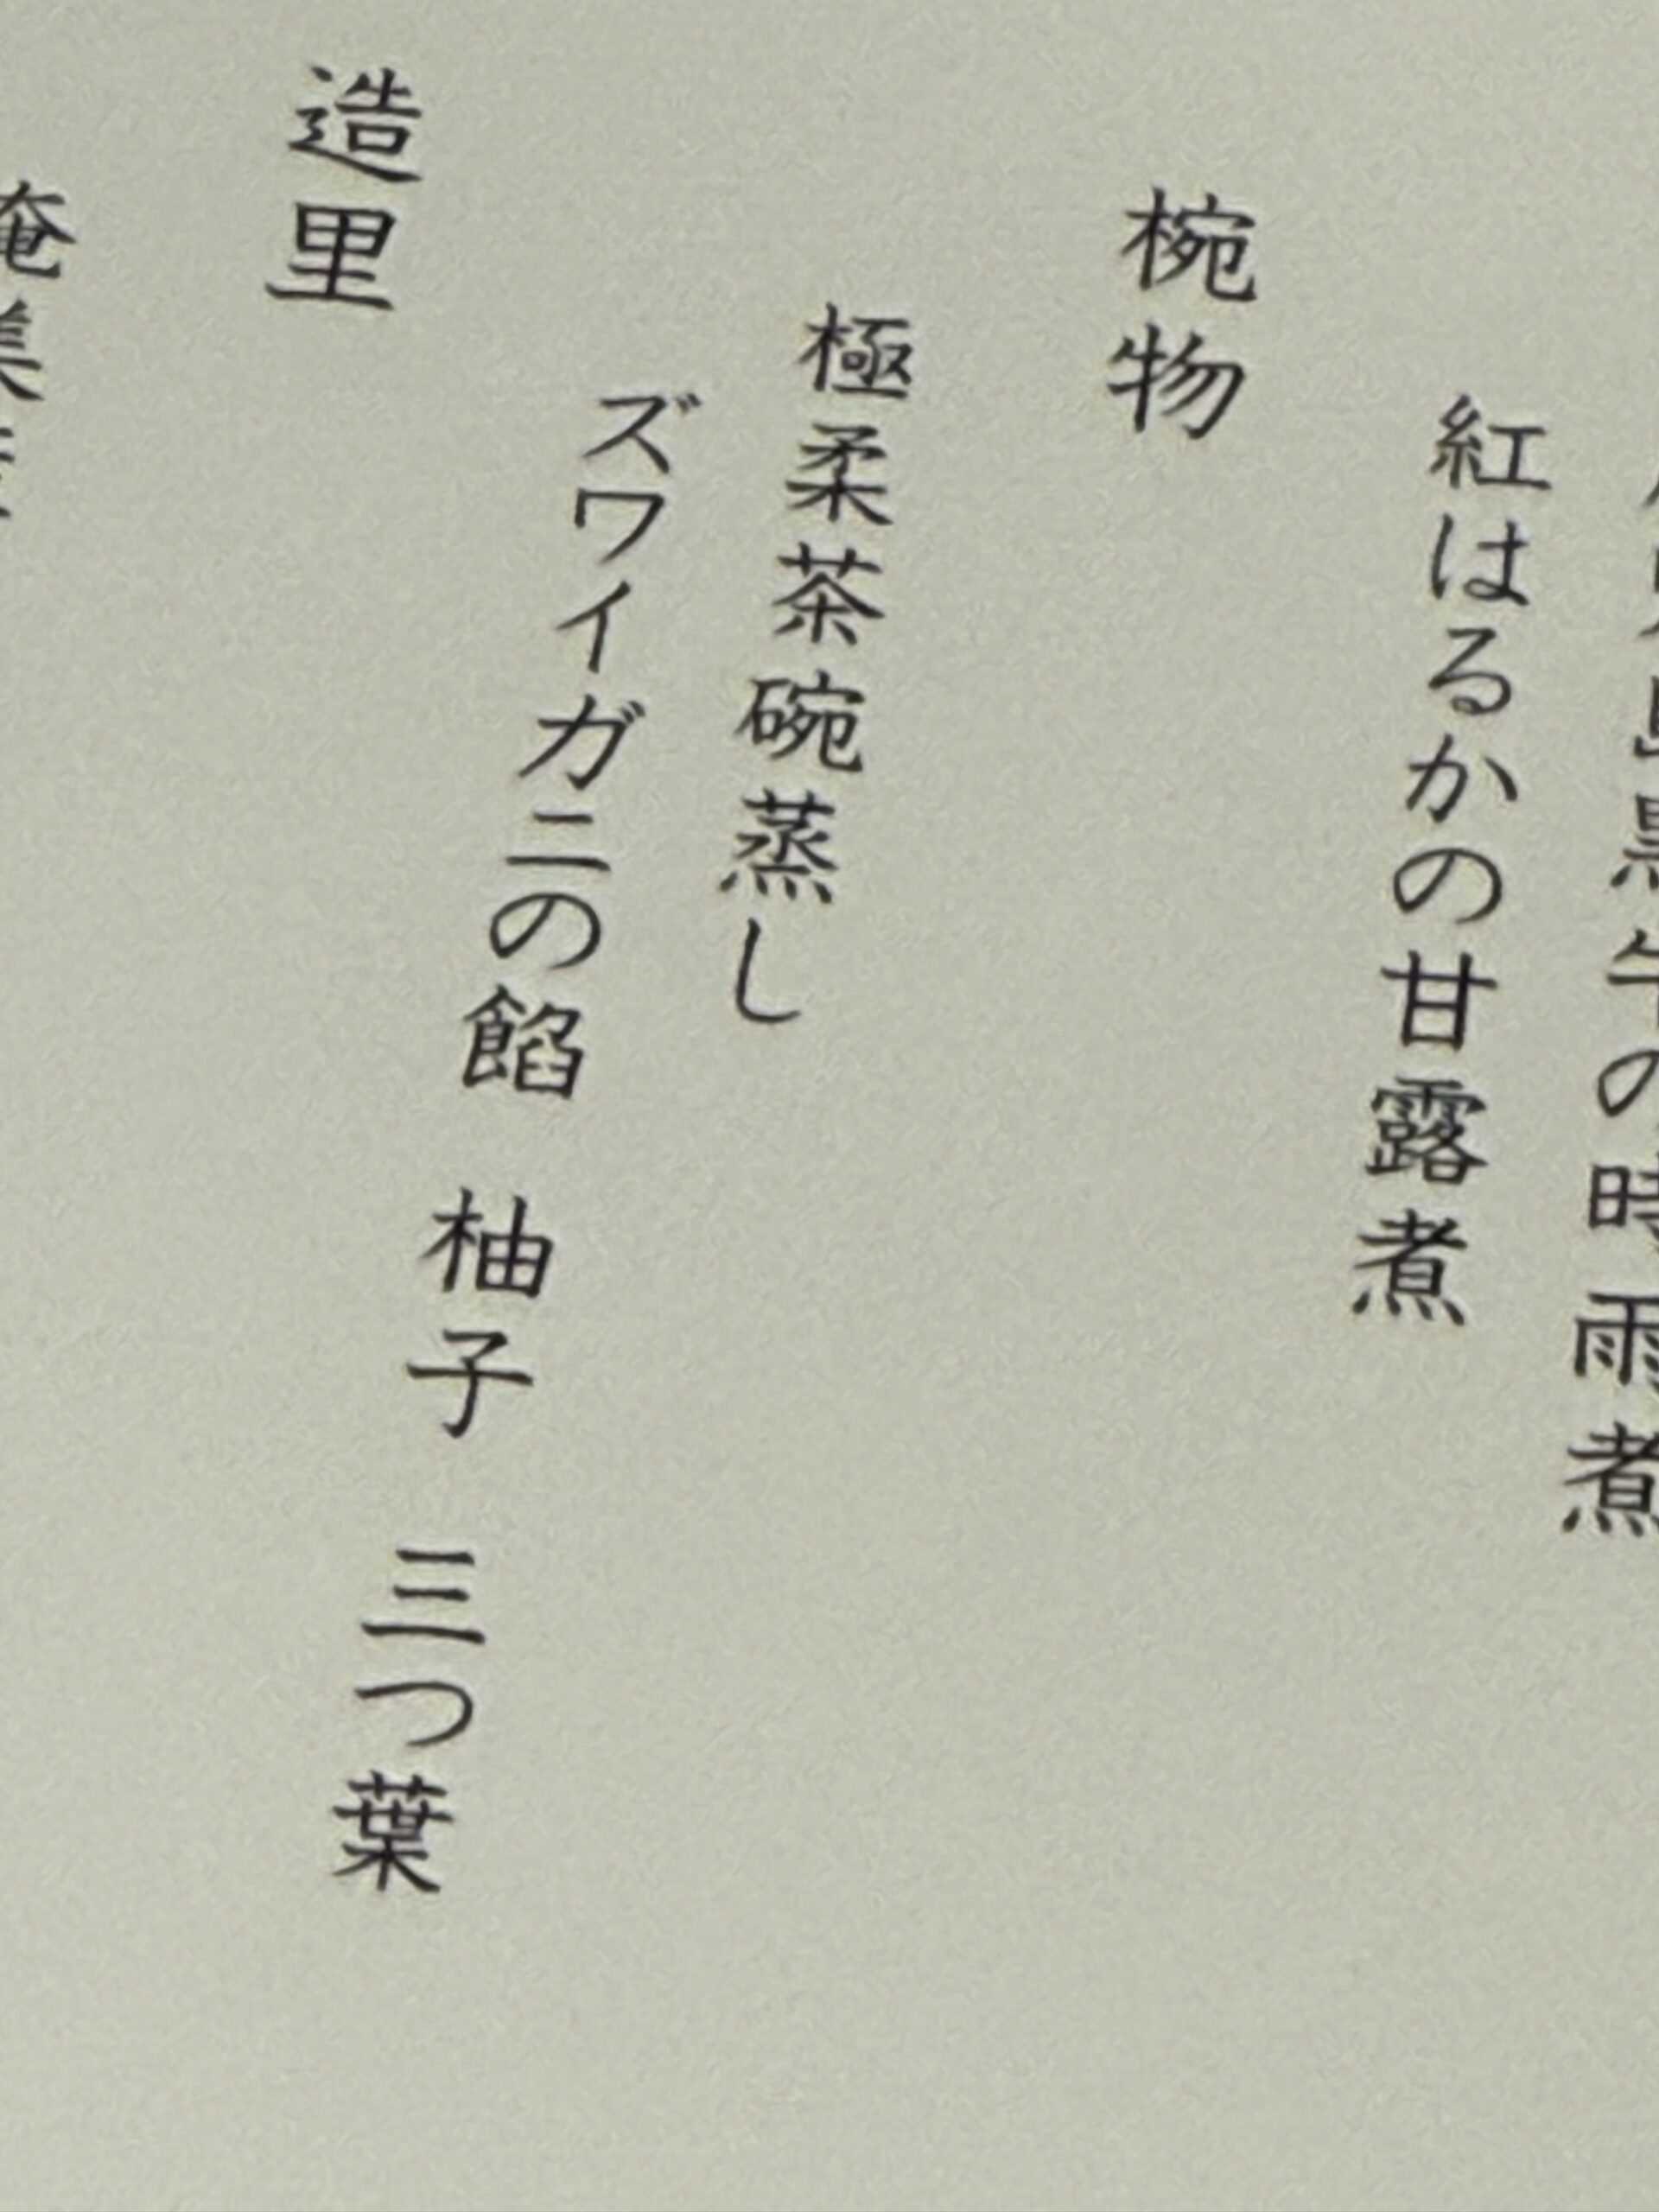 黒牛の時雨煮
紅はるかの甘露煮
椀物
極柔茶碗蒸し
ズワイガニの餡 柚子 三つ葉
造里